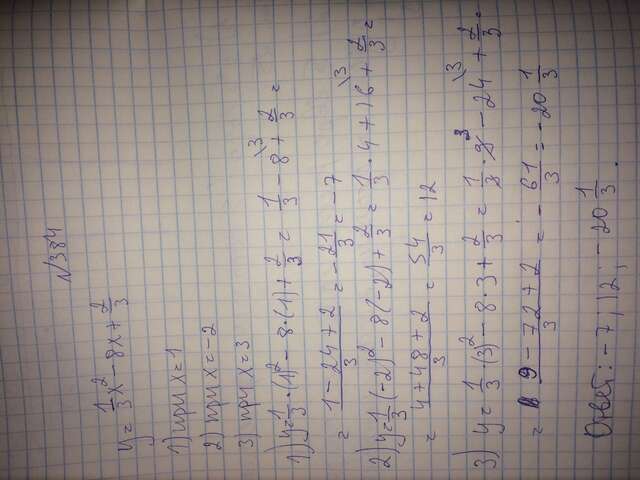 №384
y = 1/3 x² - 8x + 2/3
1) при x = 1
2) при x = -2
3) при x = 3
1) y = 1/3 · (1)² - 8 · (1) + 2/3 = 1/3 - 8\3 + 2/3 =
= (1 - 24 + 2)/3 = - 21/3 = -7
2) y = 1/3 (-2)² - 8(-2) + 2/3 = 1/3 · 4 + 16\3 + 2/3 =
= (4 + 48 + 2)/3 = 54/3 = 12
3) y = 1/3 · (3)² - 8 · 3 + 2/3 = 1/3 · 9 3 - 24\3 + 2/3 =
= (9 - 72 + 2)/3 = - 61/3 = -20 1/3
Ответ: -7; 12; -20 1/3.